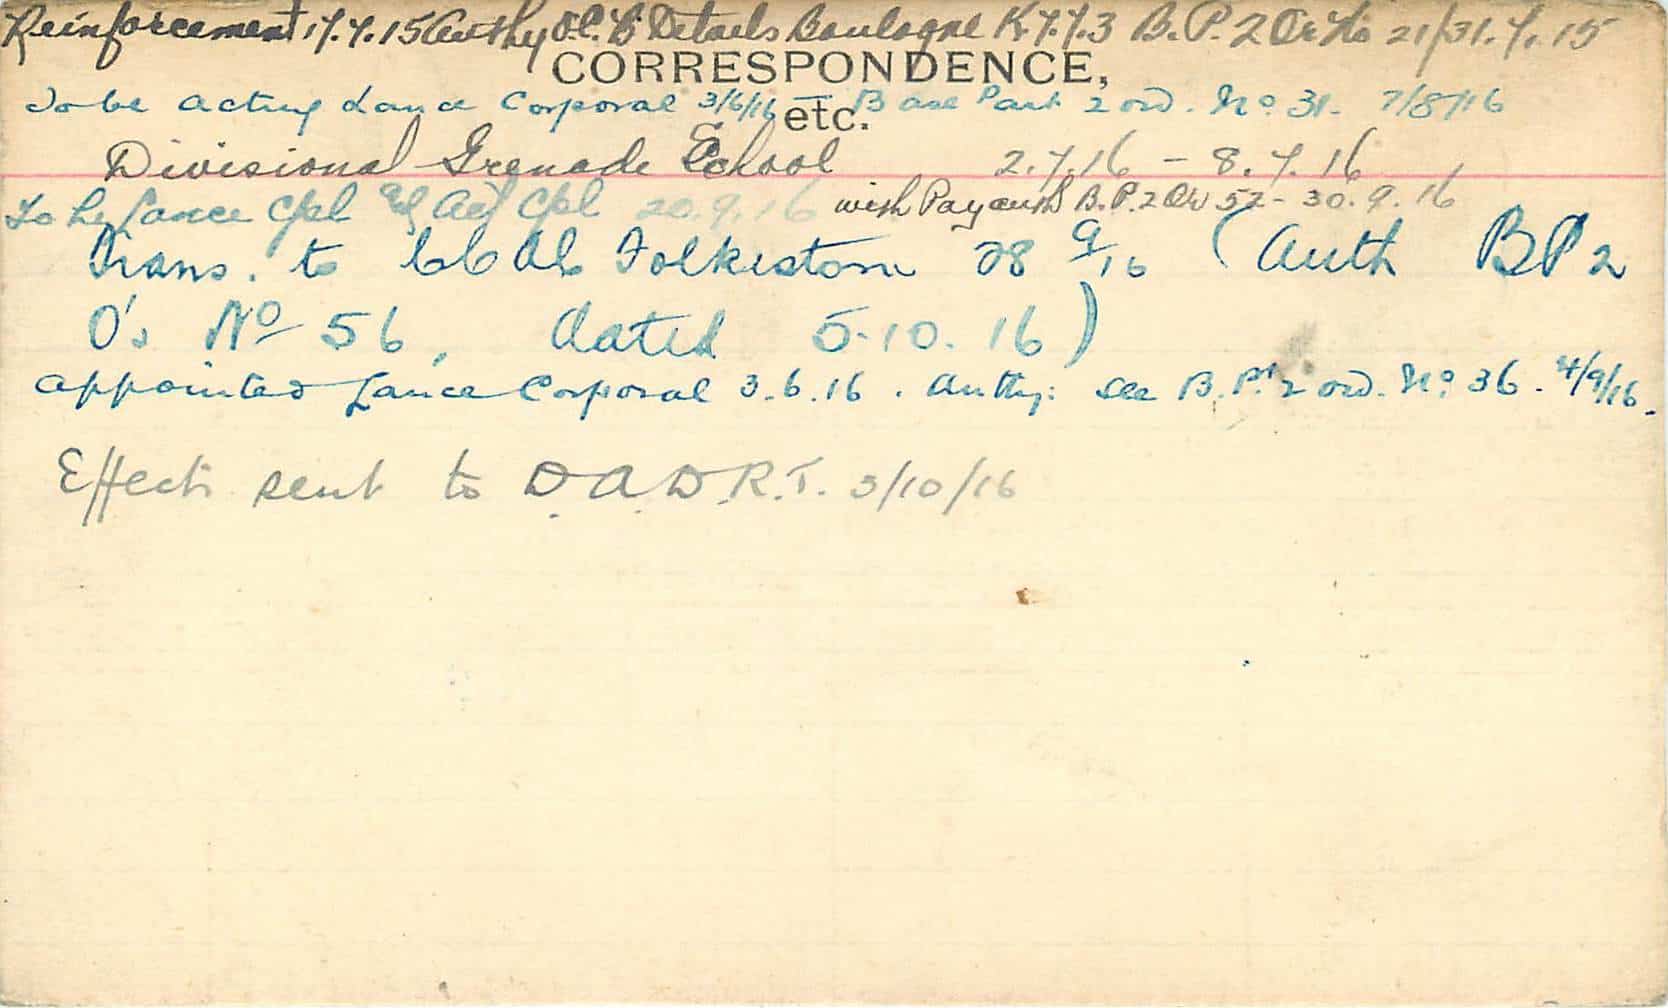 Reinforcement 17.7.15 Authy O.C. B. Details Boulogne K773 B.P. 2 Or No 21/31.7.15
CORRESPONDENCE,
To be Acting Lance Corporal 3/6/16 - Base Part 2 ord. No 31. 7/8/16
etc.
Divisional Grenade School 2.7.16 - 8.7.16
To be Lance Cpl Actg Cpl 20.9.16 with Pay auth B.P. 2 Or 52 - 30.9.16
Trans. to CCAC Folkestone 28 9/16 (Auth BP2
O's No 56, dated 5.10.16)
appointed Lance Corporal 3.6.16. Authy: see B. Pt 2 ord. No 36. 4/9/16.
Effects sent to D.A.D.R.T. 3/10/16